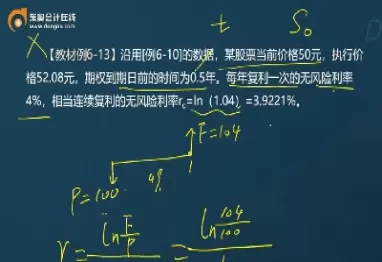 东奥会计在线
www.dongao.com
t S₀
X
【教材例6-13】沿用[例6-10]的数据，某股票当前价格50元，执行价
格52.08元，期权到期日前的时间为0.5年。每年复利一次的无风险利率
4%，相当连续复利的无风险利率rc=ln（1.04）=3.9221%。
F=104
1
P=100 4%
r= ln F/P = ln 104/100